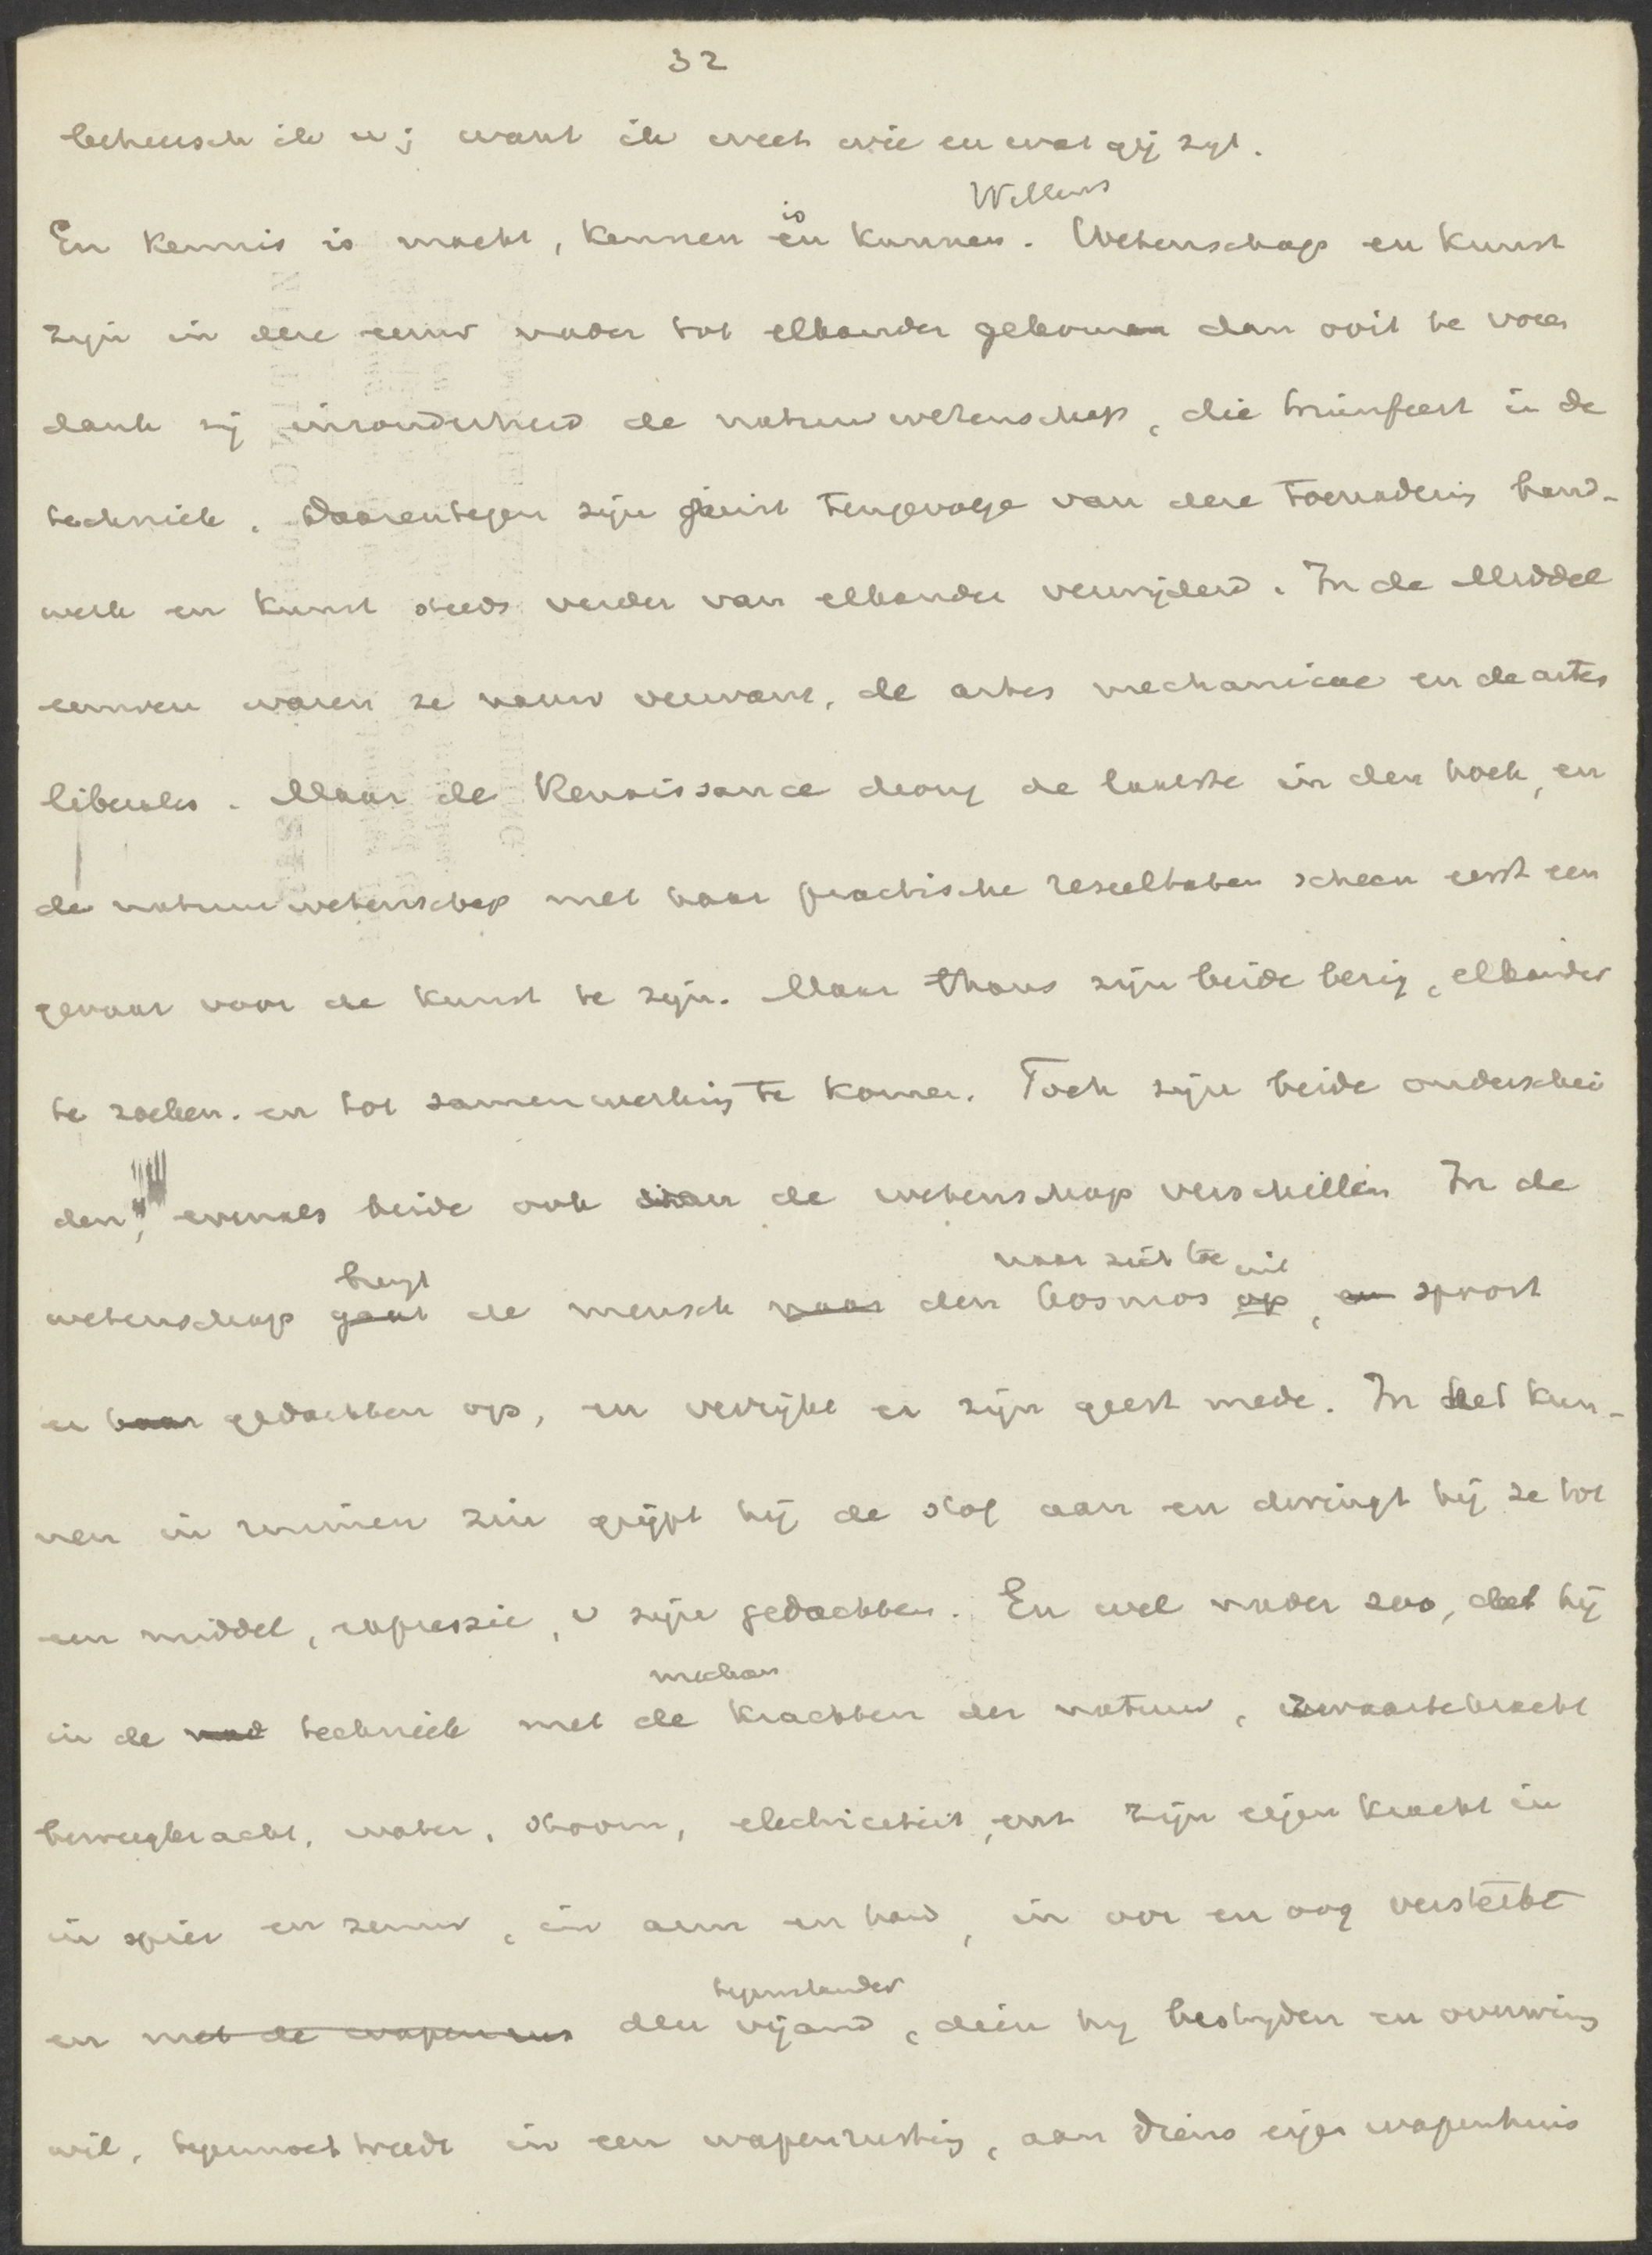 32
beheersch ik u; want ik weet wie en wat gij zijt.
Willens
is
En kennis is macht, kennen en kunnen. Wetenschap en kunst
zijn in deze eeuw nader tot elkander gekomen dan ooit te voren
dank zij inzonderheid de natuurwetenschap, die triumfeert in de
techniek. Daarentegen zijn juist tengevolge van deze toenadering hand-
werk en kunst steeds verder van elkander verwijderd. In de Middel
eeuwen waren ze nauw verwant, de artes mechanicae en de artes
liberales. Maar de Renaissance drong de laatste in den hoek, en
de natuurwetenschap met haar practische resultaten scheen eerst een
gevaar voor de kunst te zijn. Maar thans zijn beide bezig, elkander
te zoeken. en tot samenwerking te komen. Toch zijn beide onderschei
den, evenals beide ook van de wetenschap verschillen In de
brengt naar zich toe uit
wetenschap gaat de mensch naar den kosmos op, en spoort
er haar gedachten op, en verrijkt er zijn geest mede. In het kun-
nen in ruimen zin grijpt hij de stof aan en dwingt hij ze tot
een middel, expressie, v zijne gedachten. En wel nader zoo, dat hij
mechan
in de techniek met de krachten der natuur, zwaartekracht
beweegkracht, water, stoom, electriciteit, enz zijn eigen kracht in
in spier en zenuw, in arm en hand, in oor en oog versterkt
tegenstander
en met de wapenen den vijand, dien hij bestrijden en overwinn
wil, tegemoet treedt in een wapenrusting, aan diens eigen wapenhuis